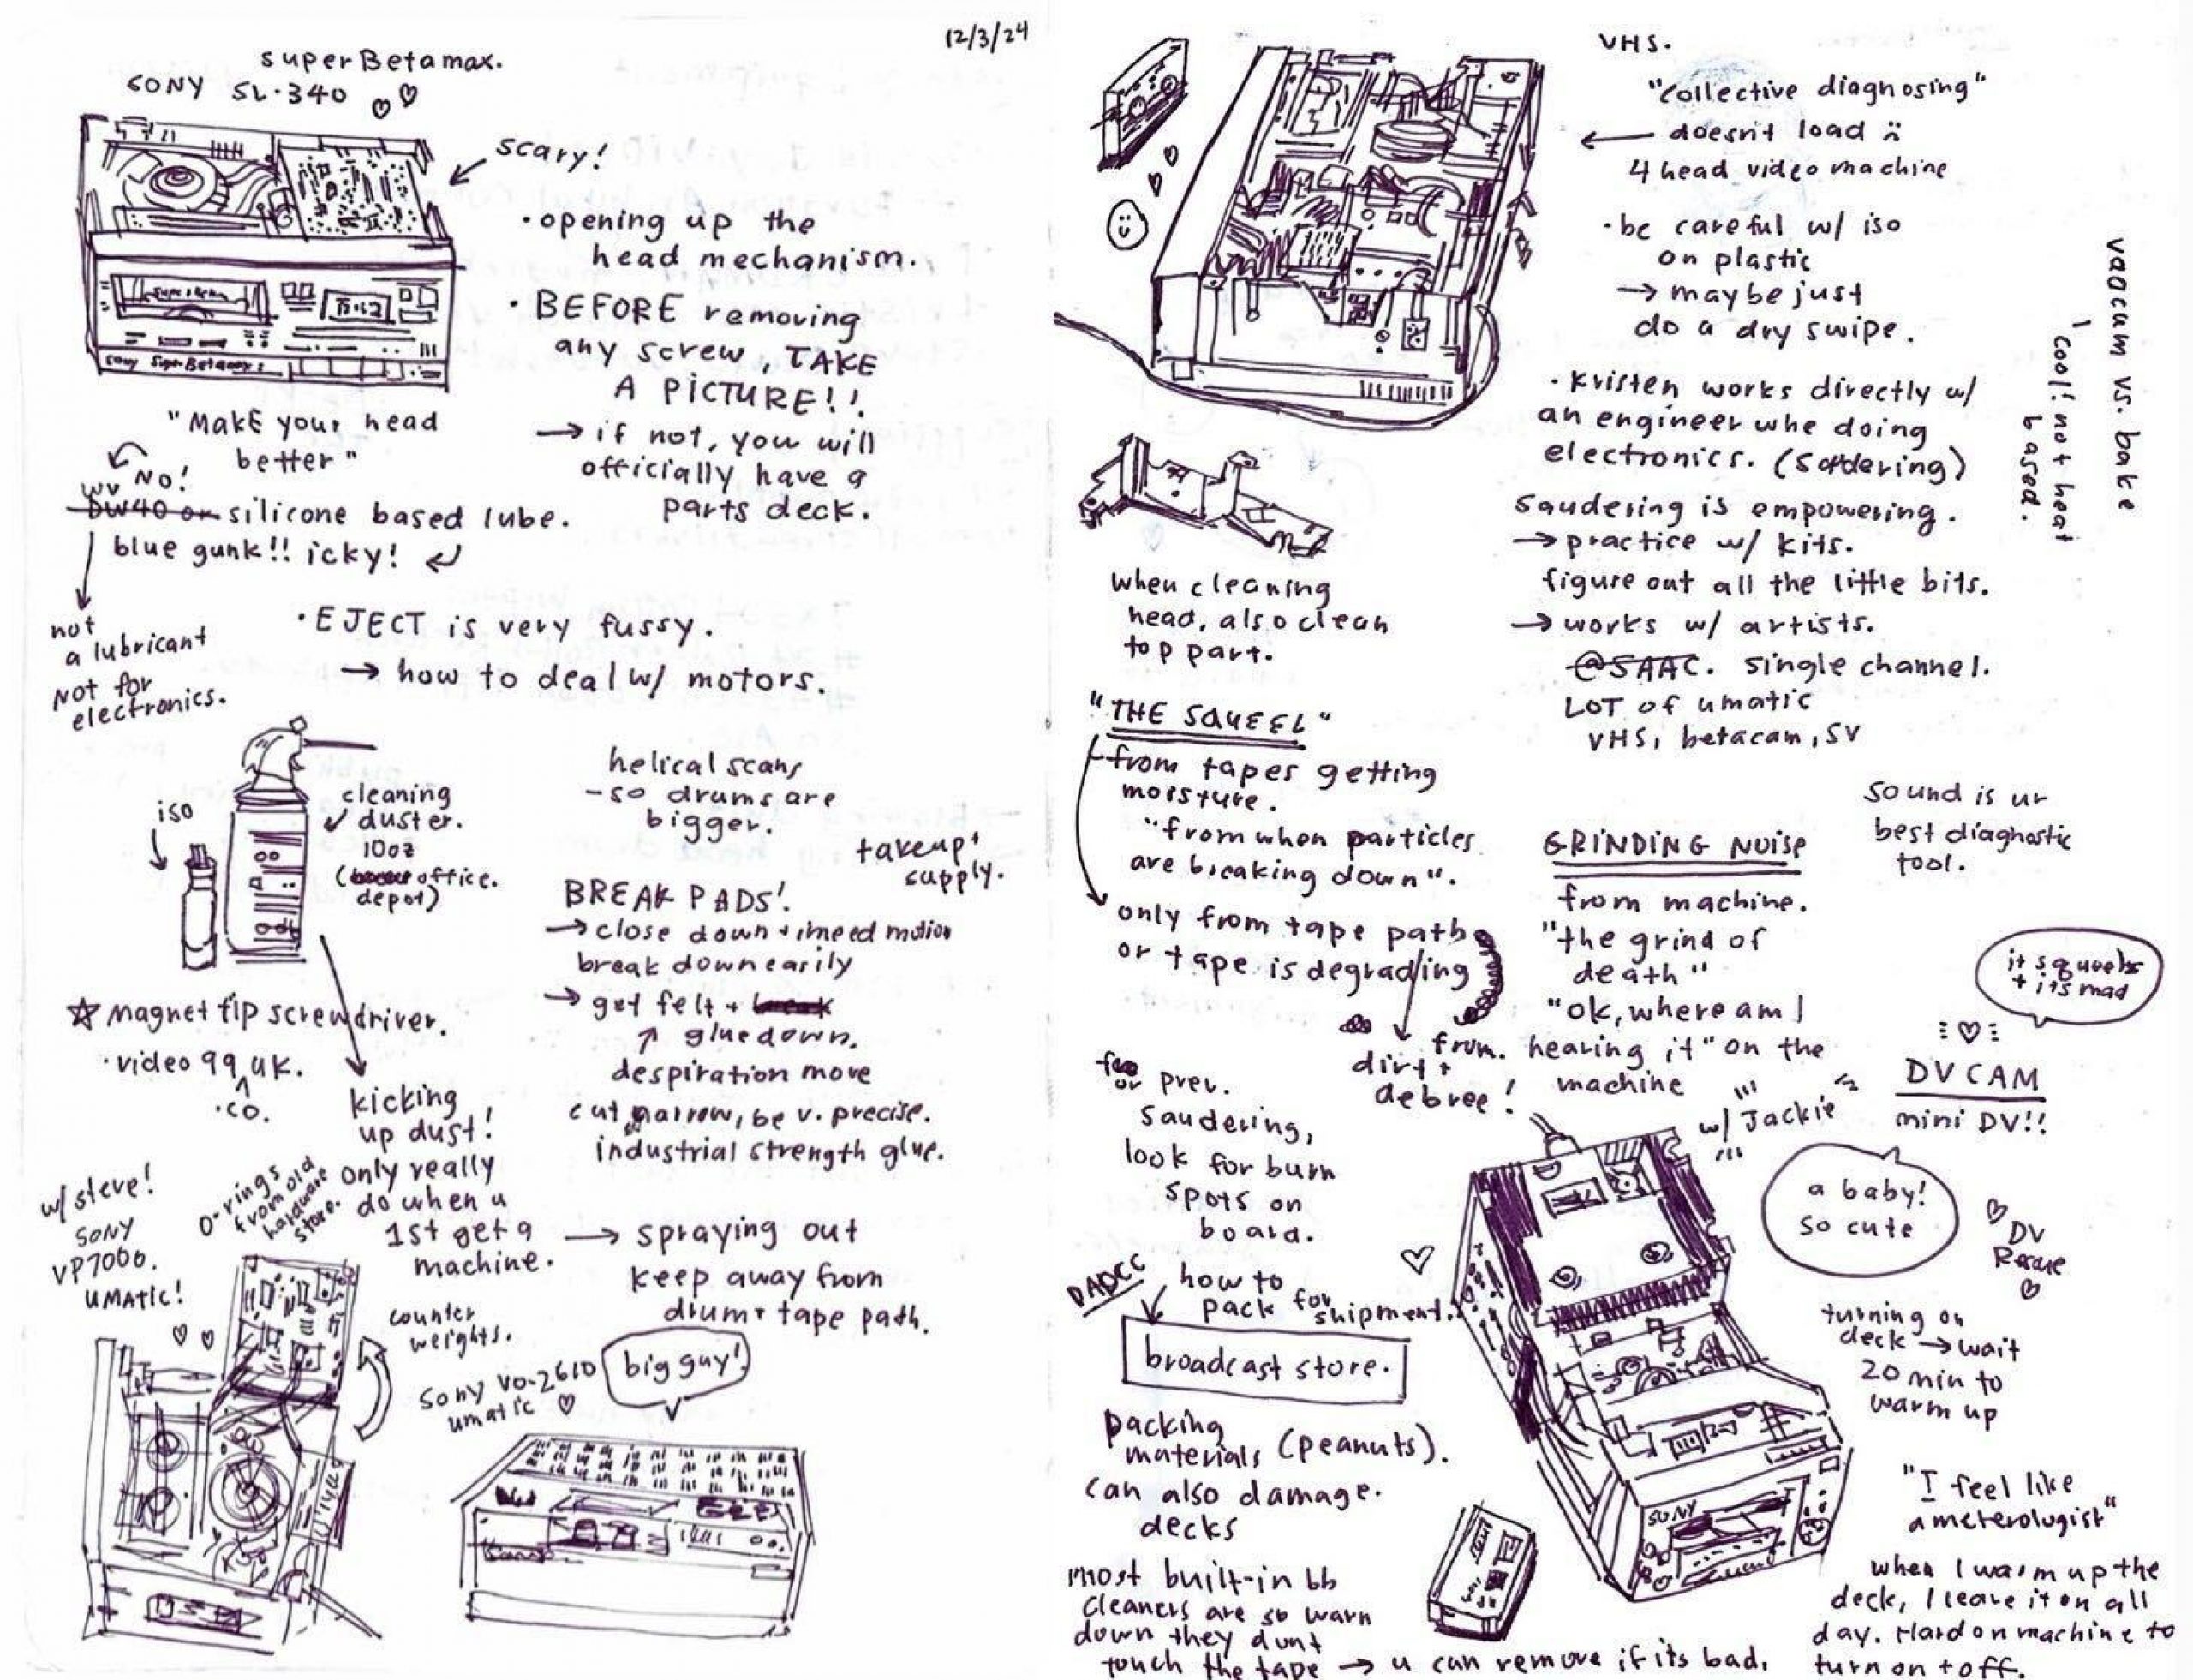 12/3/24
superBetamax.
SONY SL-340
scary!
• opening up the
head mechanism.
• BEFORE removing
any screw, TAKE
A PICTURE!!
→ if not, you will
officially have a
parts deck.
"Make your head
better"
NO!
WD
DW40 or silicone based lube.
blue gunk!! icky!
not
a lubricant
NOT for
electronics.
• EJECT is very fussy.
→ how to deal w/ motors.
iso
cleaning
duster.
10oz
(office
depot)
helical scans
- so drums are
bigger.
takeup +
supply.
BREAK PADS!
→ close down + impeed motion
break down easily
→ get felt + break
glue down.
despiration move
cut narrow, be v. precise.
industrial strength glue.
☆ magnet tip screwdriver.
• video 99 uk.
.co.
kicking
up dust!
only really
do when u
1st get a
machine.
→ spraying out
keep away from
drum + tape path.
w/ steve!
SONY
VP7000.
UMATIC!
o-rings
from old
hardware
store.
counter
weights.
Sony VO-2610
umatic
big guy!
Super Beta
Sony SuperBetamax
VHS.
"collective diagnosing"
← doesn't load
4 head video machine
• be careful w/ iso
on plastic
→ maybe just
do a dry swipe.
vaacum vs. bake
cool! not heat
based.
• Kristen works directly w/
an engineer whe doing
electronics. (soddering)
Saudering is empowering.
→ practice w/ kits.
figure out all the little bits.
→ works w/ artists.
@SAAC. single channel.
LOT of umatic
VHS, betacam, SV
when cleaning
head, also clean
top part.
"THE SQUEEL"
from tapes getting
moisture.
"from when particles
are breaking down".
only from tape path
or tape is degrading
from
dirt +
debree!
Sound is ur
best diagnostic
tool.
GRINDING NOISE
from machine.
"the grind of
death"
"ok, where am I
hearing it" on the
machine
it squeels
+ its mad
DVCAM
mini DV!!
w/ Jackie
a baby!
so cute
DV
Rescue
for prev.
saudering,
look for burn
spots on
board.
DADCC
how to
pack for
shipment.
broadcast store.
packing
materials (peanuts).
can also damage.
decks
turning on
deck → wait
20 min to
warm up
SONY
"I feel like
a meterologist"
when I warm up the
deck, I leave it on all
day. Hard on machine to
turn on + off.
most built-in bb
cleaners are so warn
down they dunt
touch the tape → u can remove if its bad.